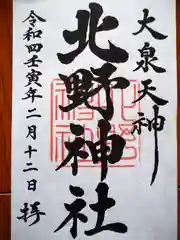 大泉天神
北野神社
令和四壬寅年二月十二日
拝